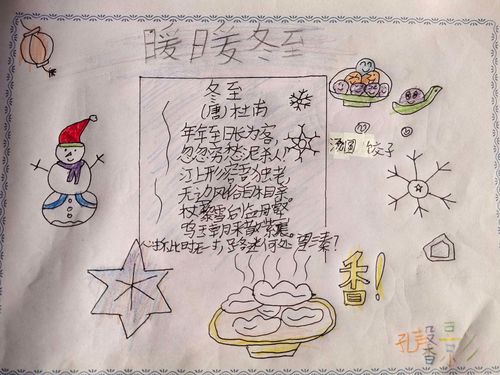 暖暖冬至
冬至
(唐)杜甫
年年至日长为客,
忽忽穷愁泥杀人!
江上形容吾独老,
风俗自相亲。
杖藜雪
鸣玉朝来散
心折此时 路迷何处望
汤圆 饺子
香!
孔馨影